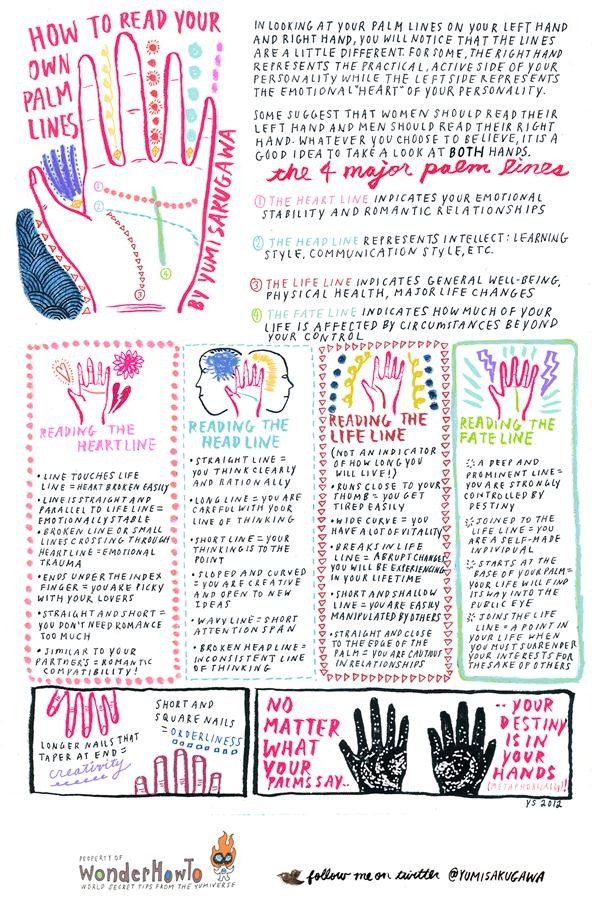 HOW TO READ YOUR
OWN
PALM
LINES
BY YUMI SAKUGAWA
1
2
3
4
IN LOOKING AT YOUR PALM LINES ON YOUR LEFT HAND
AND RIGHT HAND, YOU WILL NOTICE THAT THE LINES
ARE A LITTLE DIFFERENT. FOR SOME, THE RIGHT HAND
REPRESENTS THE PRACTICAL, ACTIVE SIDE OF YOUR
PERSONALITY WHILE THE LEFT SIDE REPRESENTS
THE EMOTIONAL "HEART" OF YOUR PERSONALITY.
SOME SUGGEST THAT WOMEN SHOULD READ THEIR
LEFT HAND AND MEN SHOULD READ THEIR RIGHT
HAND. WHATEVER YOU CHOOSE TO BELIEVE, IT IS A
GOOD IDEA TO TAKE A LOOK AT BOTH HANDS.
the 4 major palm lines
1 THE HEART LINE INDICATES YOUR EMOTIONAL
STABILITY AND ROMANTIC RELATIONSHIPS
2 THE HEAD LINE REPRESENTS INTELLECT: LEARNING
STYLE, COMMUNICATION STYLE, ETC.
3 THE LIFE LINE INDICATES GENERAL WELL-BEING,
PHYSICAL HEALTH, MAJOR LIFE CHANGES
4 THE FATE LINE INDICATES HOW MUCH OF YOUR
LIFE IS AFFECTED BY CIRCUMSTANCES BEYOND
YOUR CONTROL
READING THE
HEART LINE
• LINE TOUCHES LIFE
LINE = HEART BROKEN EASILY
• LINE IS STRAIGHT AND
PARALLEL TO LIFE LINE =
EMOTIONALLY STABLE
• BROKEN LINE OR SMALL
LINES CROSSING THROUGH
HEARTLINE = EMOTIONAL
TRAUMA
• ENDS UNDER THE INDEX
FINGER = YOU ARE PICKY
WITH YOUR LOVERS
• STRAIGHT AND SHORT =
YOU DON'T NEED ROMANCE
TOO MUCH
• SIMILAR TO YOUR
PARTNER'S = ROMANTIC
COMPATIBILITY!
READING THE
HEAD LINE
• STRAIGHT LINE =
YOU THINK CLEARLY
AND RATIONALLY
• LONG LINE = YOU ARE
CAREFUL WITH YOUR
LINE OF THINKING
• SHORT LINE = YOUR
THINKING IS TO THE
POINT
• SLOPED AND CURVED
= YOU ARE CREATIVE
AND OPEN TO NEW
IDEAS
• WAVY LINE = SHORT
ATTENTION SPAN
• BROKEN HEAD LINE =
INCONSISTENT LINE
OF THINKING
READING THE
LIFE LINE
(NOT AN INDICATOR
OF HOW LONG YOU
WILL LIVE!)
• RUNS CLOSE TO YOUR
THUMB = YOU GET
TIRED EASILY
• WIDE CURVE = YOU
HAVE A LOT OF VITALITY
• BREAKS IN LIFE
LINE = ABRUPT CHANGES
YOU WILL BE EXPERIENCING
IN YOUR LIFETIME
• SHORT AND SHALLOW
LINE = YOU ARE EASILY
MANIPULATED BY OTHERS
• STRAIGHT AND CLOSE
TO THE EDGE OF THE
PALM = YOU ARE CAUTIOUS
IN RELATIONSHIPS
READING THE
FATE LINE
A DEEP AND
PROMINENT LINE =
YOU ARE STRONGLY
CONTROLLED BY
DESTINY
JOINED TO THE
LIFE LINE = YOU
ARE A SELF-MADE
INDIVIDUAL
STARTS AT THE
BASE OF YOUR PALM =
YOUR LIFE WILL FIND
ITS WAY INTO THE
PUBLIC EYE
JOINS THE LIFE
LINE = A POINT IN
YOUR LIFE WHEN
YOU MUST SURRENDER
YOUR INTERESTS FOR
THE SAKE OF OTHERS
LONGER NAILS THAT
TAPER AT END =
creativity
SHORT AND
SQUARE NAILS
= ORDERLINESS
NO
MATTER
WHAT
YOUR
PALMS SAY..
..YOUR
DESTINY
IS IN
YOUR
HANDS
(METAPHORICALLY)!
YS 2012
PROPERTY OF
WonderHowTo
WORLD SECRET TIPS FROM THE YUMIVERSE
follow me on twitter @YUMISAKUGAWA